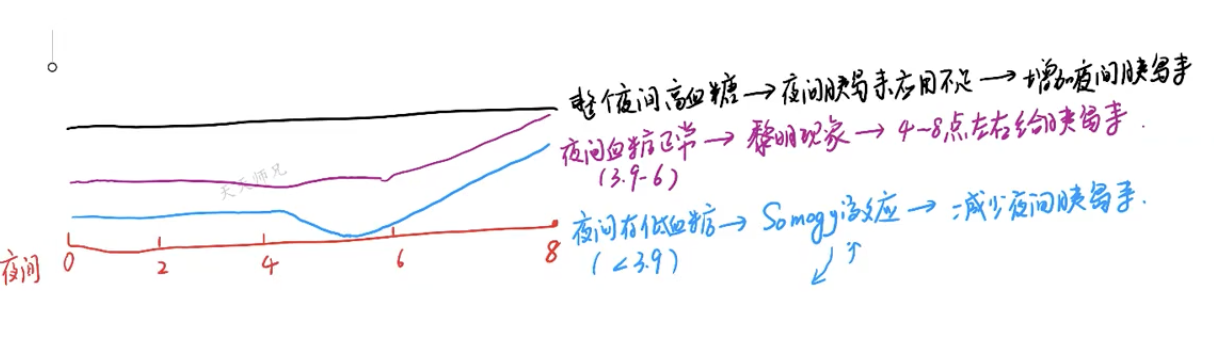 整个夜间高血糖→夜间胰岛素应用不足→增加夜间胰岛素
夜间血糖正常→黎明现象→4-8点左右给胰岛素.
(3.9-6)
天天师兄
夜间有低血糖→Somogyi效应→减少夜间胰岛素.
(<3.9)
夜间 0 2 4 6 8